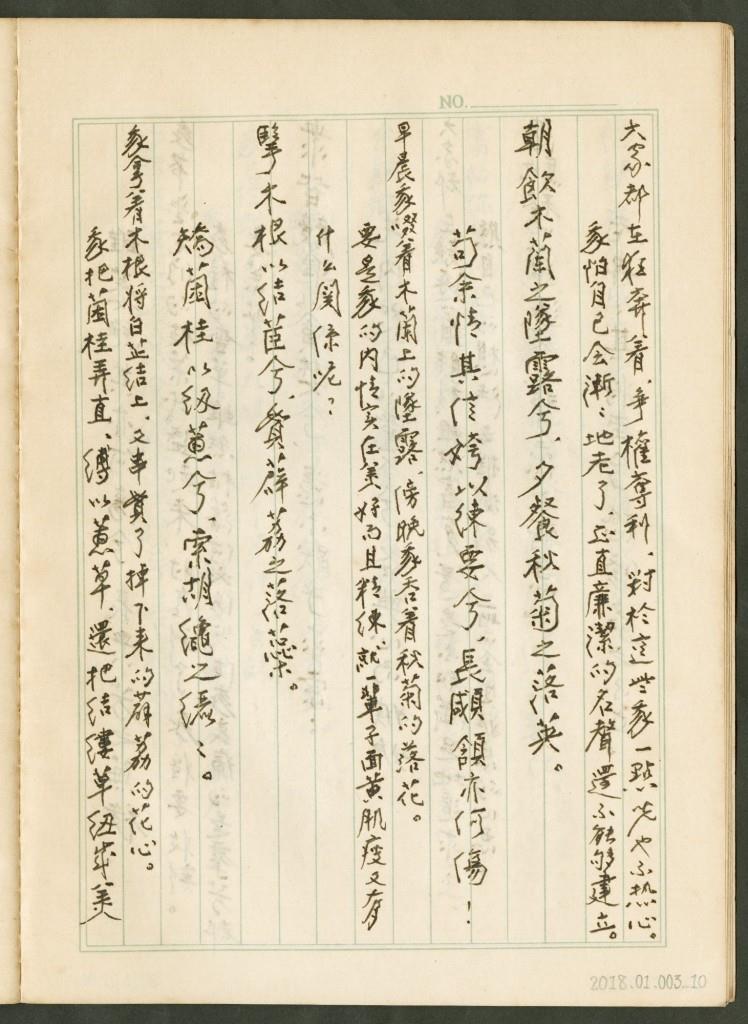 NO.
大家都在狂奔着、爭權奪利、對於這些我一點兒也不热心。
我怕自己会漸々地老了、正直廉潔的名聲還不能够建立。
朝飲木蘭之墜露兮、夕餐秋菊之落英。
苟余情其信姱以練要兮、長顑頷亦何傷！
早晨我啜着木蘭上的墜露、傍晚我吞着秋菊的落花。
要是我的内情实在美好而且精練、就一輩子面黄肌瘦又有
什么関係呢？
擥木根以结茝兮、貫薜荔之落蕊。
矯菌桂以纫蕙兮、索胡繩之纚々。
我拿着木根将白芷结上、又串貫了掉下来的薜荔的花心。
我把菌桂弄直、縛以蕙草、還把结縷草纽成美
2018.01.003_10